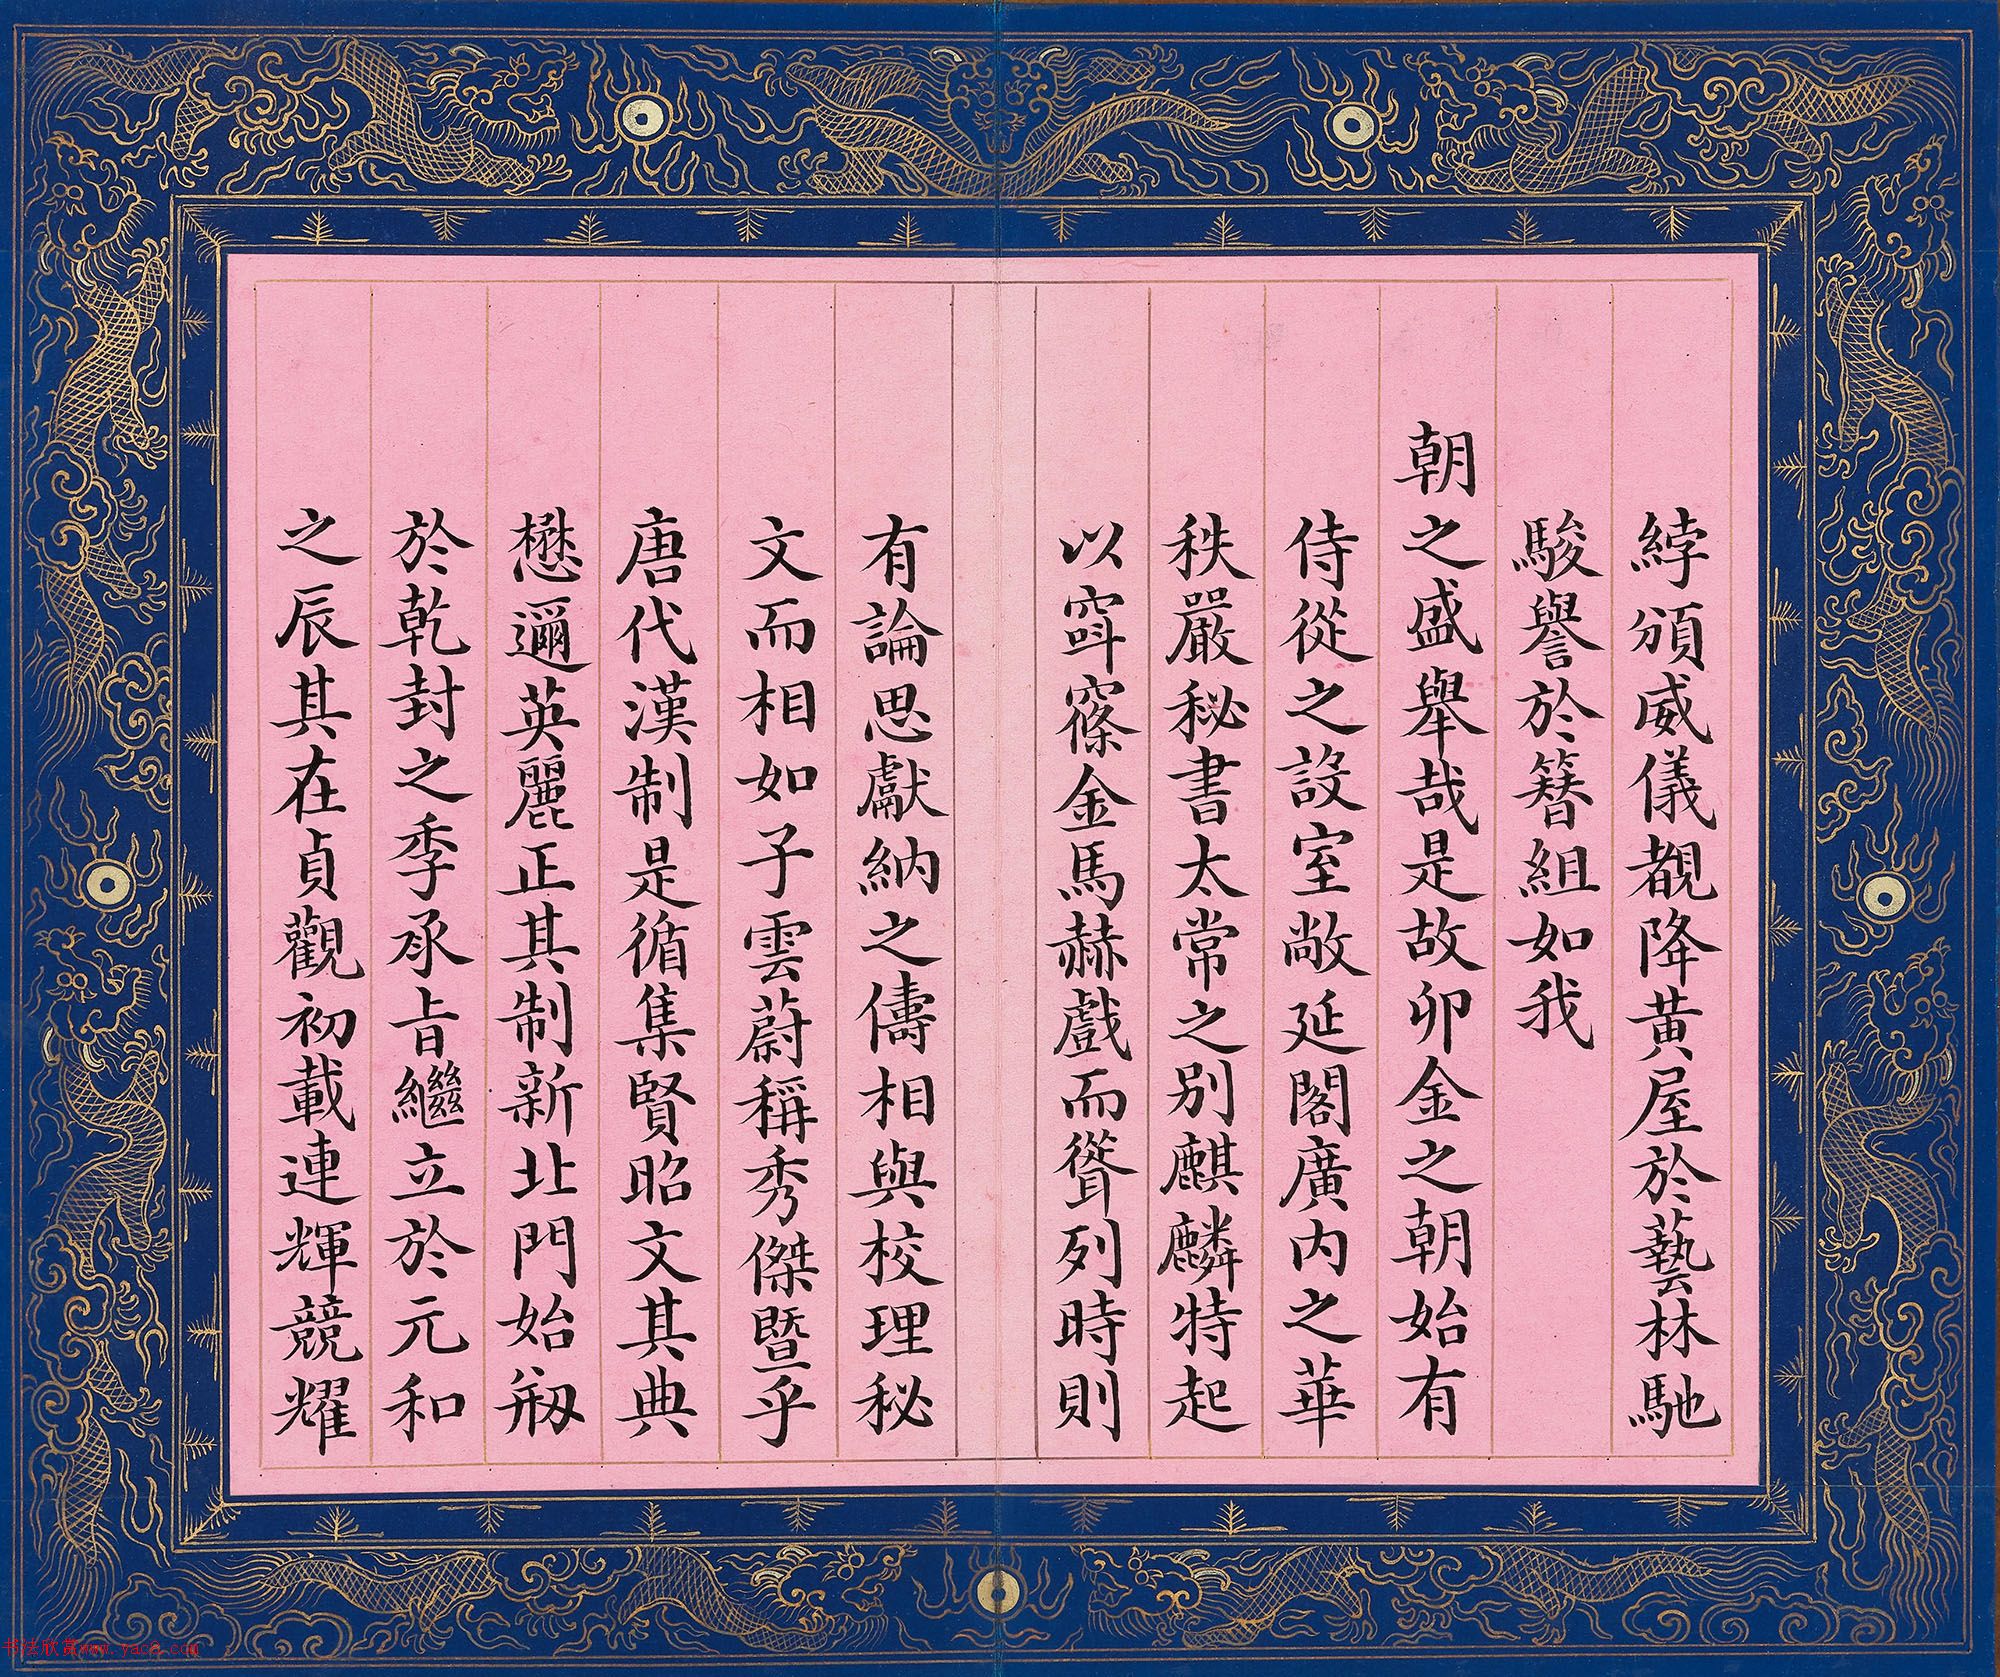 綍頒威儀覩降黃屋於藝林馳
駿譽於簪組如我
朝之盛舉哉是故卯金之朝始有
侍從之設室敞延閣廣內之華
秩嚴秘書太常之別麒麟特起
以窲窱金馬赫戲而聳列時則
有論思獻納之儔相與校理秘
文而相如子雲蔚稱秀傑暨乎
唐代漢制是循集賢昭文其典
懋邇英麗正其制新北門始剏
於乾封之季承旨繼立於元和
之辰其在貞觀初載連輝競耀
书法欣赏www.yac8.com